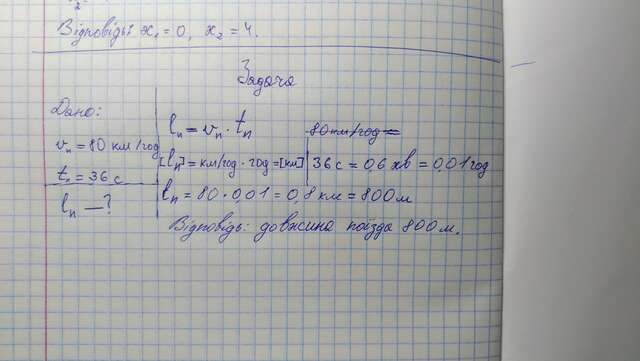 Відповідь: x₁ = 0, x₂ = 4.
Задача
Дано:
vₙ = 80 км/год
tₙ = 36 с
lₙ — ?
lₙ = vₙ · tₙ
80 км/год =
[lₙ] = км/год · год = [км]
36 с = 0,6 хв = 0,01 год
lₙ = 80 · 0,01 = 0,8 км = 800 м
Відповідь: довжина поїзда 800 м.